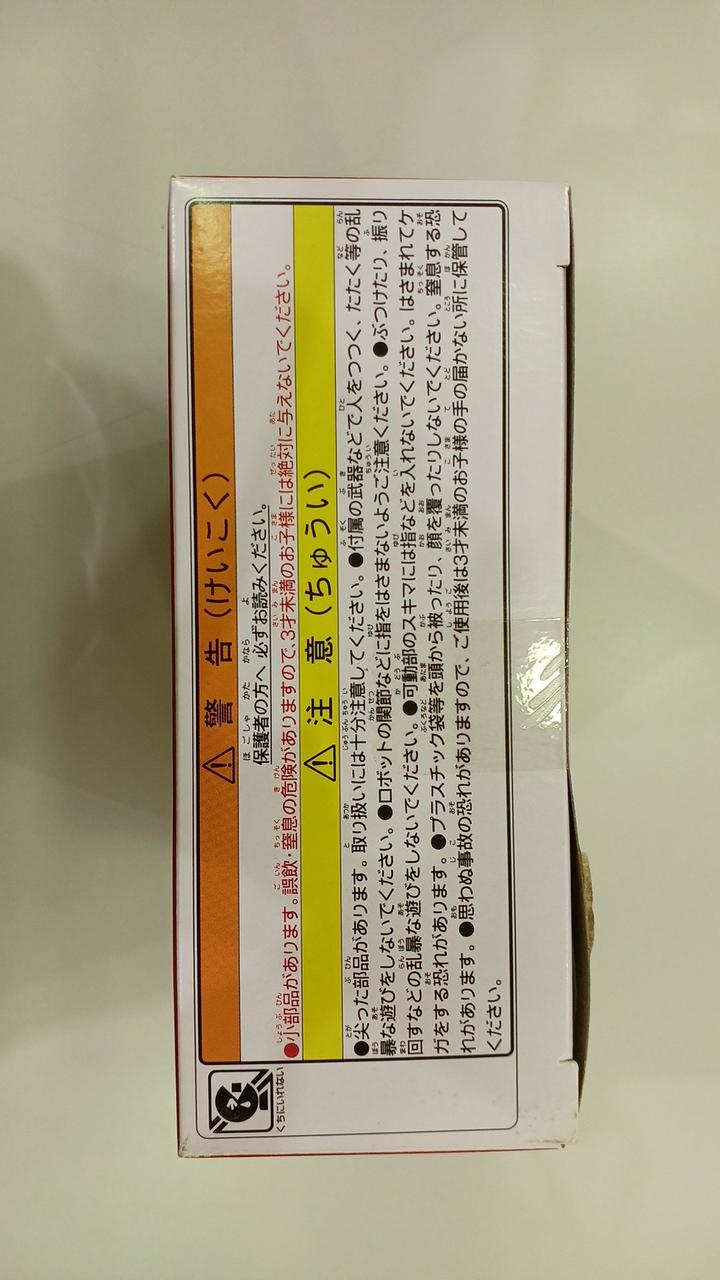 ⚠ 警 告 (けいこく)
保護者の方へ 必ずお読みください。
●小部品があります。誤飲・窒息の危険がありますので、3才未満のお子様には絶対に与えないでください。
⚠ 注 意 (ちゅうい)
●尖った部品があります。取り扱いには十分注意してください。●付属の武器などで人をつつく、たたく等の乱
暴な遊びをしないでください。●ロボットの関節などに指をはさまないようご注意ください。●ぶつけたり、振り
回すなどの乱暴な遊びをしないでください。●可動部のスキマには指などを入れないでください。はさまれてケ
ガをする恐れがあります。●プラスチック袋等を頭から被ったり、顔を覆ったりしないでください。窒息する恐
れがあります。●思わぬ事故の恐れがありますので、ご使用後は3才未満のお子様の手の届かない所に保管して
ください。
くちにいれない